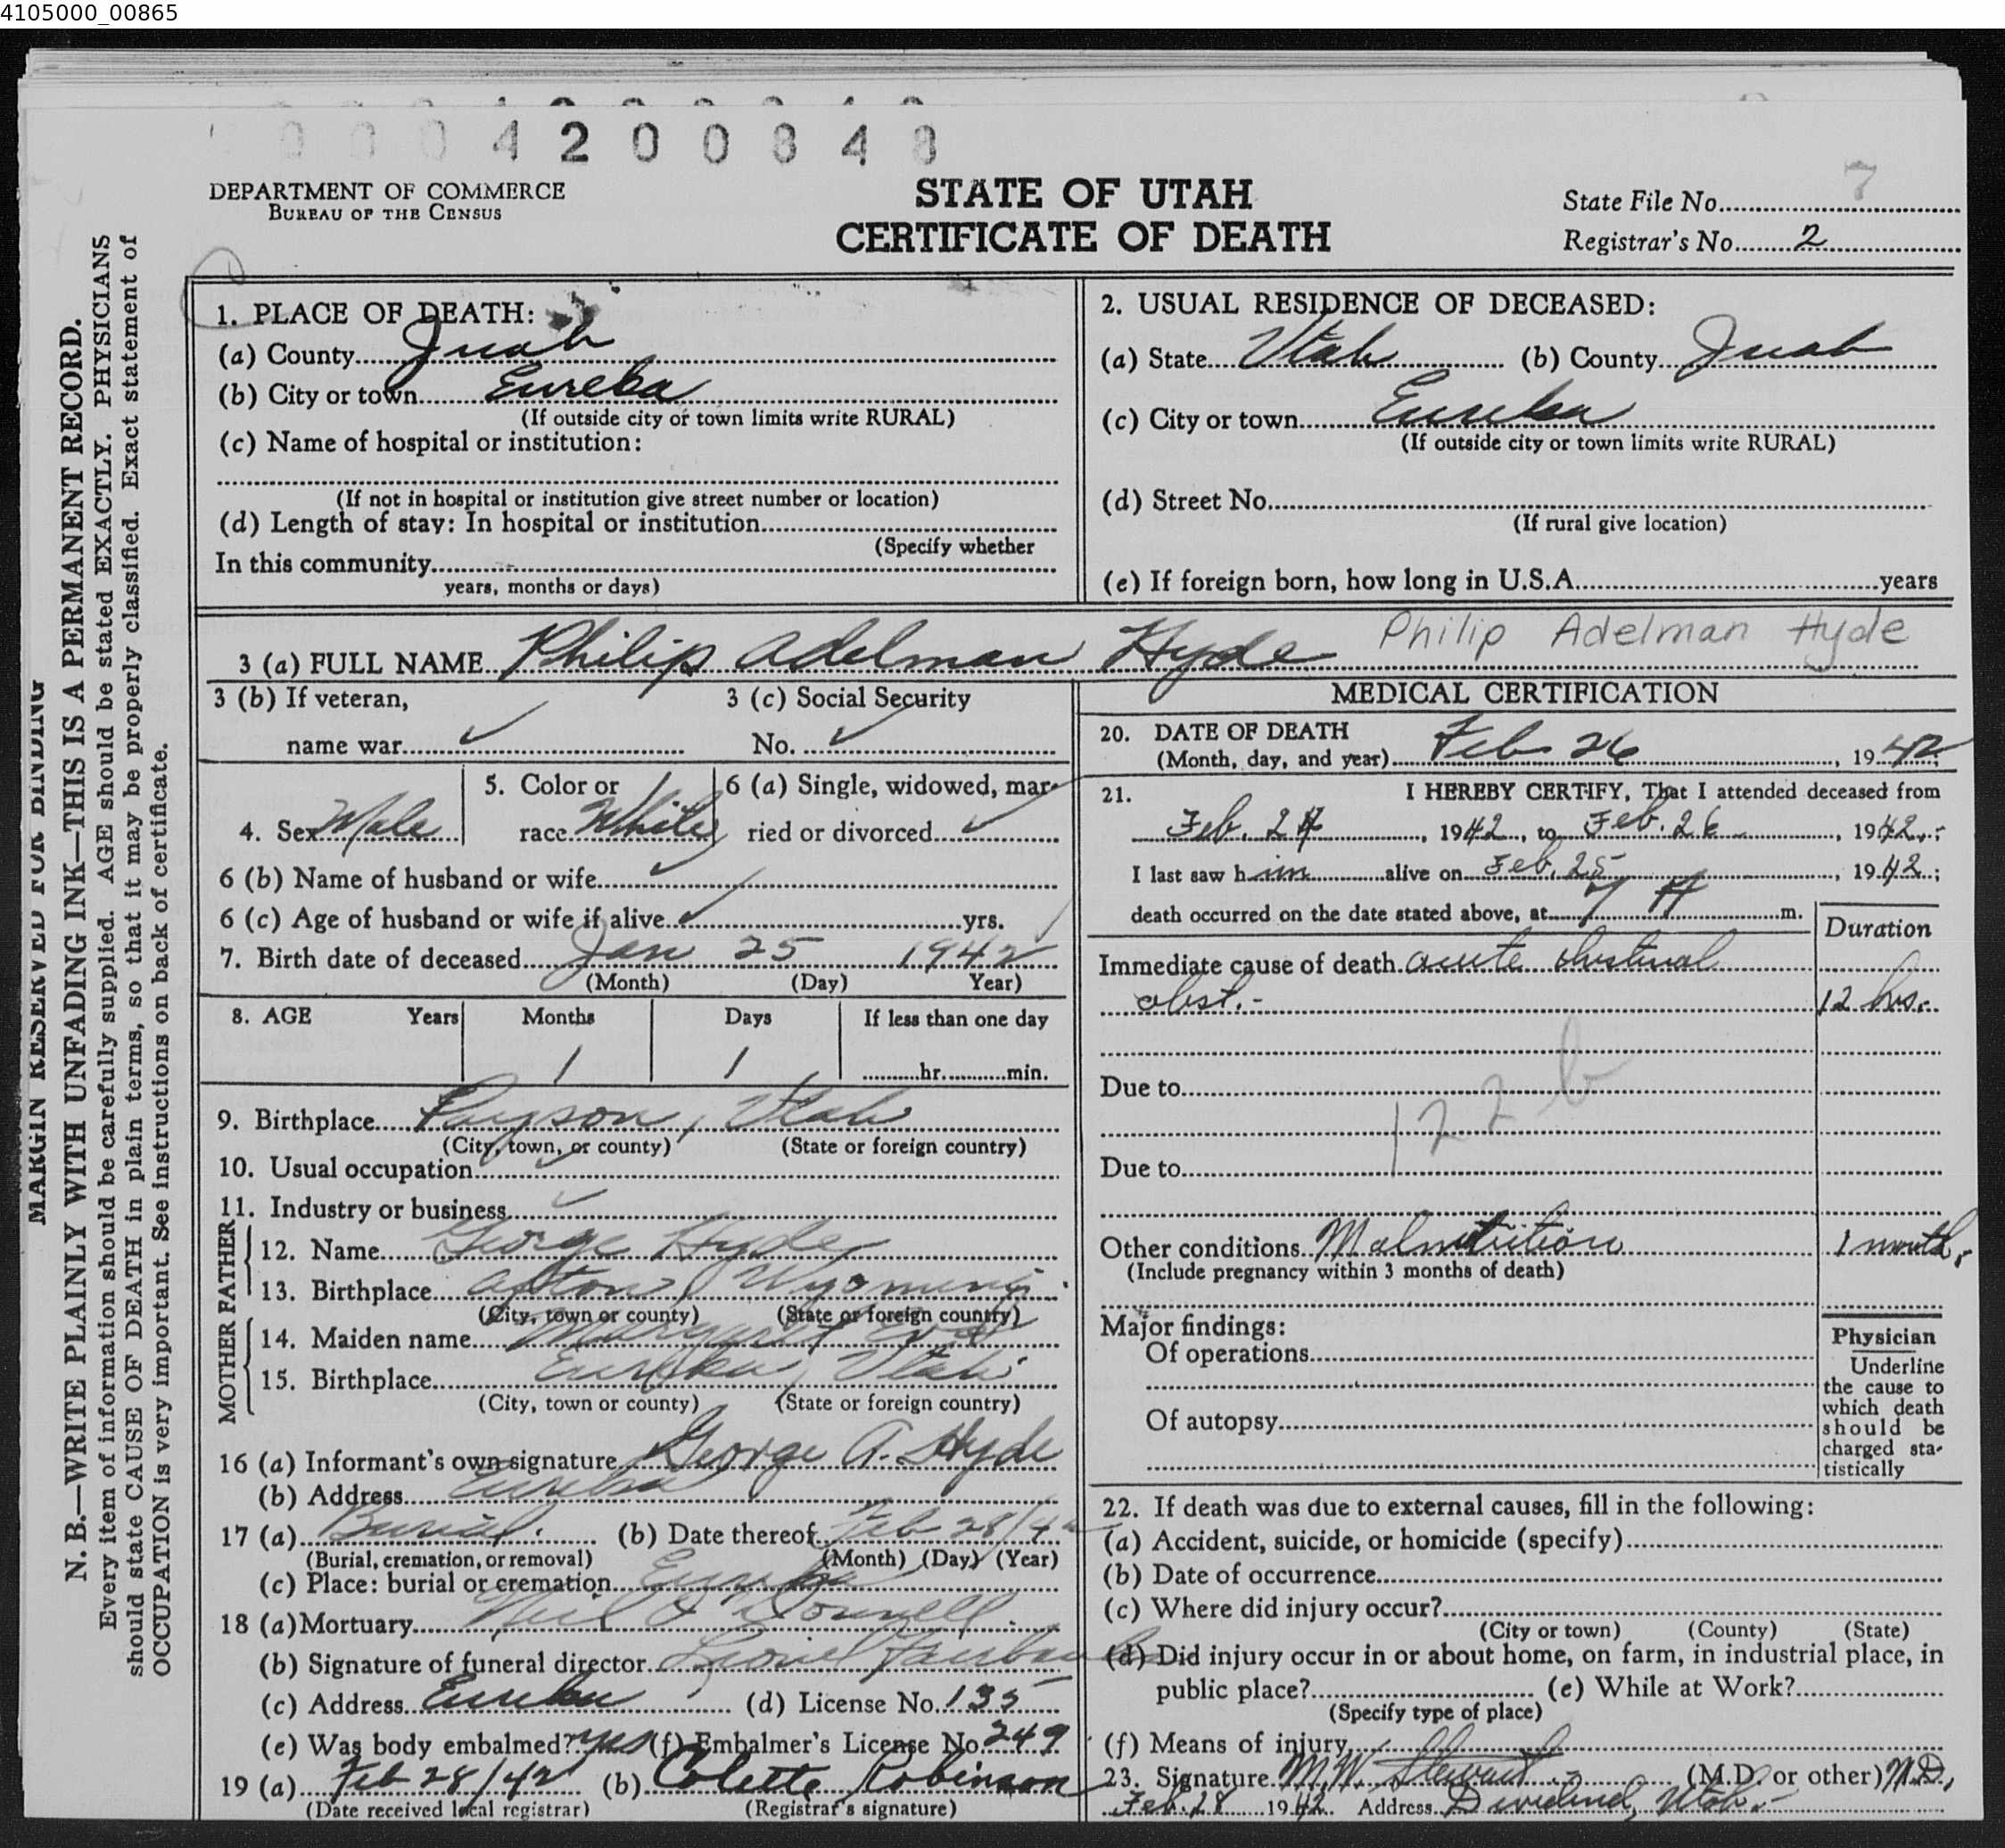 4105000_00865
0004200848
DEPARTMENT OF COMMERCE
BUREAU OF THE CENSUS
STATE OF UTAH
CERTIFICATE OF DEATH
State File No. 7
Registrar's No. 2
MARGIN RESERVED FOR BINDING
N. B.—WRITE PLAINLY WITH UNFADING INK—THIS IS A PERMANENT RECORD.
Every item of information should be carefully supplied. AGE should be stated EXACTLY. PHYSICIANS
should state CAUSE OF DEATH in plain terms, so that it may be properly classified. Exact statement of
OCCUPATION is very important. See instructions on back of certificate.
1. PLACE OF DEATH:
(a) County Juab
(b) City or town Eureka
(If outside city or town limits write RURAL)
(c) Name of hospital or institution:
(If not in hospital or institution give street number or location)
(d) Length of stay: In hospital or institution
(Specify whether
In this community
years, months or days)
2. USUAL RESIDENCE OF DECEASED:
(a) State Utah (b) County Juab
(c) City or town Eureka
(If outside city or town limits write RURAL)
(d) Street No.
(If rural give location)
(e) If foreign born, how long in U.S.A. years
3 (a) FULL NAME Philip Adelman Hyde Philip Adelman Hyde
3 (b) If veteran,
name war
3 (c) Social Security
No.
4. Sex Male
5. Color or
race White
6 (a) Single, widowed, mar-
ried or divorced
6 (b) Name of husband or wife
6 (c) Age of husband or wife if alive yrs.
7. Birth date of deceased Jan 25 1942
(Month) (Day) Year)
8. AGE Years Months Days If less than one day
1 1 hr. min.
9. Birthplace Payson, Utah
(City, town, or county) (State or foreign country)
10. Usual occupation
11. Industry or business
FATHER
12. Name George Hyde
13. Birthplace Afton, Wyoming
(City, town or county) (State or foreign country)
MOTHER
14. Maiden name Margaret
15. Birthplace Eureka, Utah
(City, town or county) (State or foreign country)
16 (a) Informant's own signature George A. Hyde
(b) Address Eureka
17 (a) Burial (b) Date thereof Feb 28/42
(Burial, cremation, or removal) (Month) (Day) (Year)
(c) Place: burial or cremation Eureka
18 (a) Mortuary Neil O'Donnell
(b) Signature of funeral director Lionel Fairbanks
(c) Address Eureka (d) License No. 135
(e) Was body embalmed? yes (f) Embalmer's License No. 249
19 (a) Feb 28/42 (b) Colette Robinson
(Date received local registrar) (Registrar's signature)
MEDICAL CERTIFICATION
20. DATE OF DEATH
(Month, day, and year) Feb 26, 1942
21. I HEREBY CERTIFY, That I attended deceased from
Feb. 24, 1942, to Feb. 26, 1942;
I last saw him alive on Feb. 25, 1942;
death occurred on the date stated above, at 7 A m.
Duration
Immediate cause of death acute intestinal
obst.- 12 hrs.
122b
Due to
Due to
Other conditions Malnutrition 1 month
(Include pregnancy within 3 months of death)
Major findings:
Of operations
Of autopsy
Physician
Underline
the cause to
which death
should be
charged sta-
tistically
22. If death was due to external causes, fill in the following:
(a) Accident, suicide, or homicide (specify)
(b) Date of occurrence
(c) Where did injury occur?
(City or town) (County) (State)
(d) Did injury occur in or about home, on farm, in industrial place, in
public place? (e) While at Work?
(Specify type of place)
(f) Means of injury
23. Signature M.W. Stewart (M.D. or other) M.D.
Feb. 28 1942. Address Dividend, Utah.